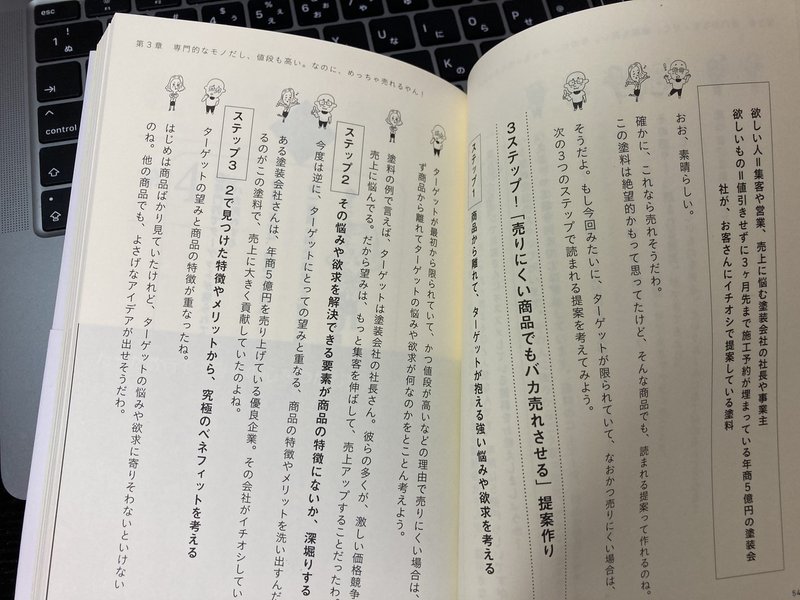 欲しい人＝集客や営業、売上に悩む塗装会社の社長や事業主
欲しいもの＝値引きせずに3ヶ月先まで施工予約が埋まっている年商5億円の塗装会
社が、お客さんにイチオシで提案している塗料
おお、素晴らしい。
確かに、これなら売れそうだわ。
この塗料は絶望的かもって思ってたけど、そんな商品でも、読まれる提案って作れるのね。
そうだよ。もし今回みたいに、ターゲットが限られていて、なおかつ売りにくい場合は、
次の3つのステップで読まれる提案を考えてみよう。
3ステップ！「売りにくい商品でもバカ売れさせる」提案作り
ステップ1 商品から離れて、ターゲットが抱える強い悩みや欲求を考える
54
第3章 専門的なモノだし、値段も高い。なのに、めっちゃ売れるやん！
ターゲットが最初から限られていて、かつ値段が高いなどの理由で売りにくい場合は、
ず商品から離れてターゲットの悩みや欲求が何なのかをとことん考えよう。
塗料の例で言えば、ターゲットは塗装会社の社長さん。彼らの多くが、激しい価格競争
売上に悩んでる。だから望みは、もっと集客を伸ばして、売上アップすることだったわ
ステップ2 その悩みや欲求を解決できる要素が商品の特徴にないか、深堀りする
今度は逆に、ターゲットにとっての望みと重なる、商品の特徴やメリットを洗い出すんだ
ある塗装会社さんは、年商5億円を売り上げている優良企業。その会社がイチオシしてい
るのがこの塗料で、売上に大きく貢献していたのよね。
ステップ3 2で見つけた特徴やメリットから、究極のベネフィットを考える
ターゲットの望みと商品の特徴が重なったね。
はじめは商品ばかり見ていたけれど、ターゲットの悩みや欲求に寄りそわないといけない
のね。他の商品でも、よさげなアイデアが出せそうだわ。
control